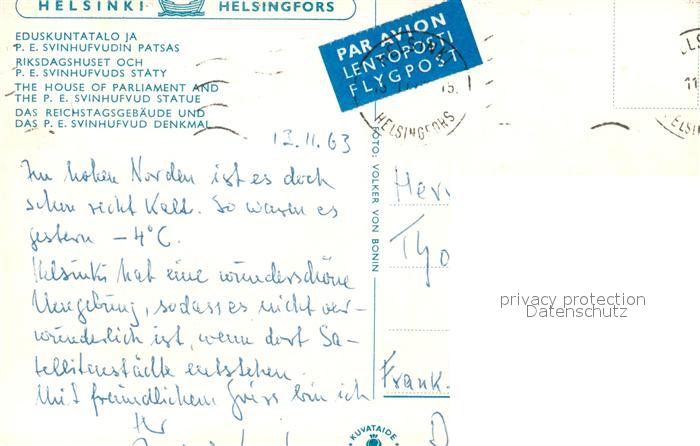 HELSINKI HELSINGFORS
EDUSKUNTATALO JA
P. E. SVINHUFVUDIN PATSAS
RIKSDAGSHUSET OCH
P. E. SVINHUFVUDS STATY
THE HOUSE OF PARLIAMENT AND
THE P. E. SVINHUFVUD STATUE
DAS REICHSTAGSGEBÄUDE UND
DAS P. E. SVINHUFVUD DENKMAL
PAR AVION
LENTOPOSTI
FLYGPOST
HELSINGFORS
11
FOTO: VOLKER VON BONIN
12.11.63
Im hohen Norden ist es doch
schon recht kalt. So waren es
gestern – 4°C.
Helsinki hat eine wunderschöne
Umgebung, sodass es nicht ver-
wunderlich ist, wenn dort Sa-
tellitenstädte entstehen.
Mit freundlichem Gruss bin ich
Ihr
Herr
Tho
Frank.
D
KUVATAIDE
privacy protection
Datenschutz